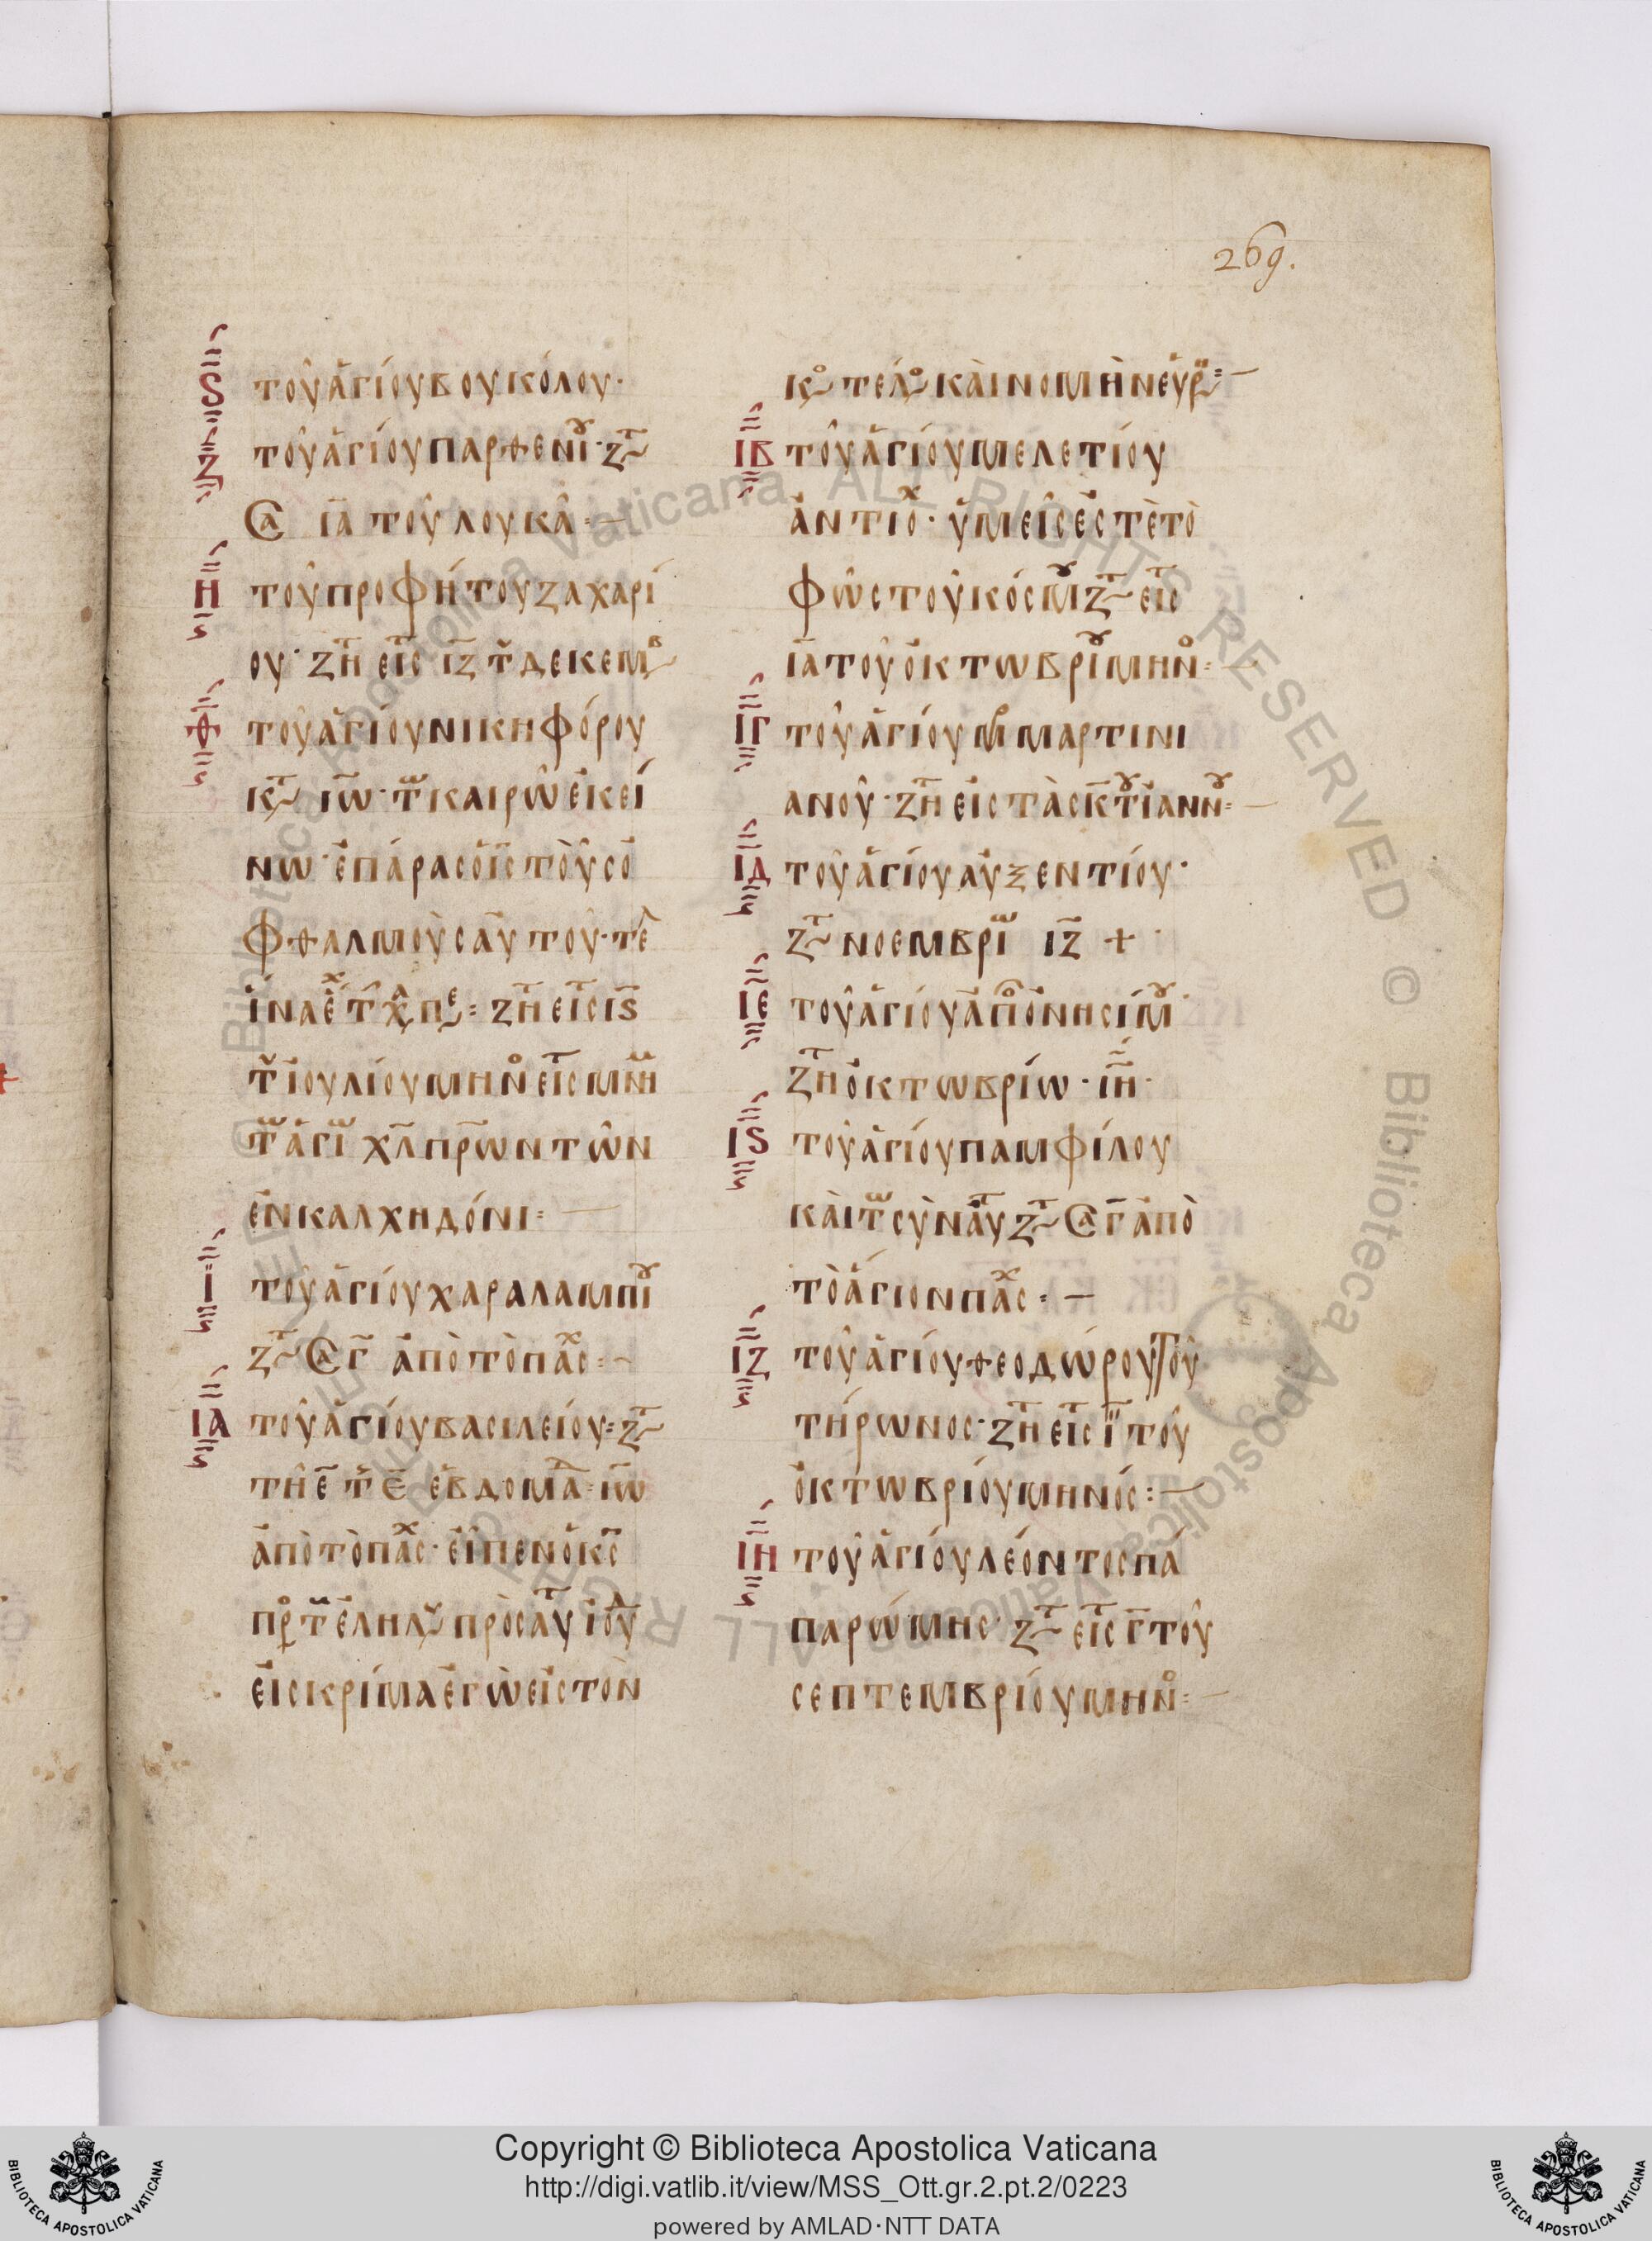 269.
Ϛ τοῦ ἁγίου βουκόλου·
Ζ τοῦ ἁγίου παρθενί· ζτ
Cα ια τοῦ λουκᾶ
Η τοῦ προφήτου ζαχαρί
ου· ζτη εἰς ιζ τ δεκεμβ
Θ τοῦ ἁγίου νικηφόρου
κτ ιω· τ καιρῶ ἐκεί
νω· ἐπάρας ὁ ις τοὺς ὀ
φθαλμοὺς αὐτοῦ· τε
ἵνα εχ τ χα πε ζτη εἰς ιϛ
τ ἰουλίου μην εἰς μνη
τ ἁγι χλ πρων τῶν
ἐν καλχηδόνι
Ι τοῦ ἁγίου χαραλαμπι
ζτ Cα γ ἀπὸ τὸ πασχ
ΙΑ τοῦ ἁγίου βασιλείου ζτ
τῆ ε τ ε ἑβδομα ιω
ἀπὸ τὸ πασχ· εἶπεν ὁ κς
πρ τ ἐληλ πρὸς αυτ ιουδ
εἰς κρίμα ἐγὼ εἰς τὸν
κο τελ καινομην ευρ
ΙΒ τοῦ ἁγίου μελετίου
ἀντιοχ· ὑμεῖς ἐστὲ τὸ
φῶς τοῦ κόσμ ζτ εἰς
ια τοῦ ὀκτωβρι μην
ΙΓ τοῦ ἁγίου μ μαρτινι
ανοῦ· ζτη εἰς τὰς κ τ ἰανν
ΙΔ τοῦ ἁγίου αὐξεντίου·
ζτ νοεμβρι ιζ +
ΙΕ τοῦ ἁγίου απο ὀνησίμ
ζτη ὀκτωβρίω· ιη·
ΙϚ τοῦ ἁγίου παμφίλου
καὶ τ συν αυτ ζτ Cα γ ἀπὸ
τὸ ἅγιον πασχ
ΙΖ τοῦ ἁγίου θεοδώρου τοῦ
τήρωνος· ζτη εἰς ι τοῦ
ὀκτωβρίου μηνός
ΙΗ τοῦ ἁγίου λέοντος πά
πα ρώμης· ζτ εἰς γ τοῦ
σεπτεμβρίου μην
Copyright © Biblioteca Apostolica Vaticana
http://digi.vatlib.it/view/MSS_Ott.gr.2.pt.2/0223
powered by AMLAD·NTT DATA
BIBLIOTECA APOSTOLICA VATICANA
BIBLIOTECA APOSTOLICA VATICANA